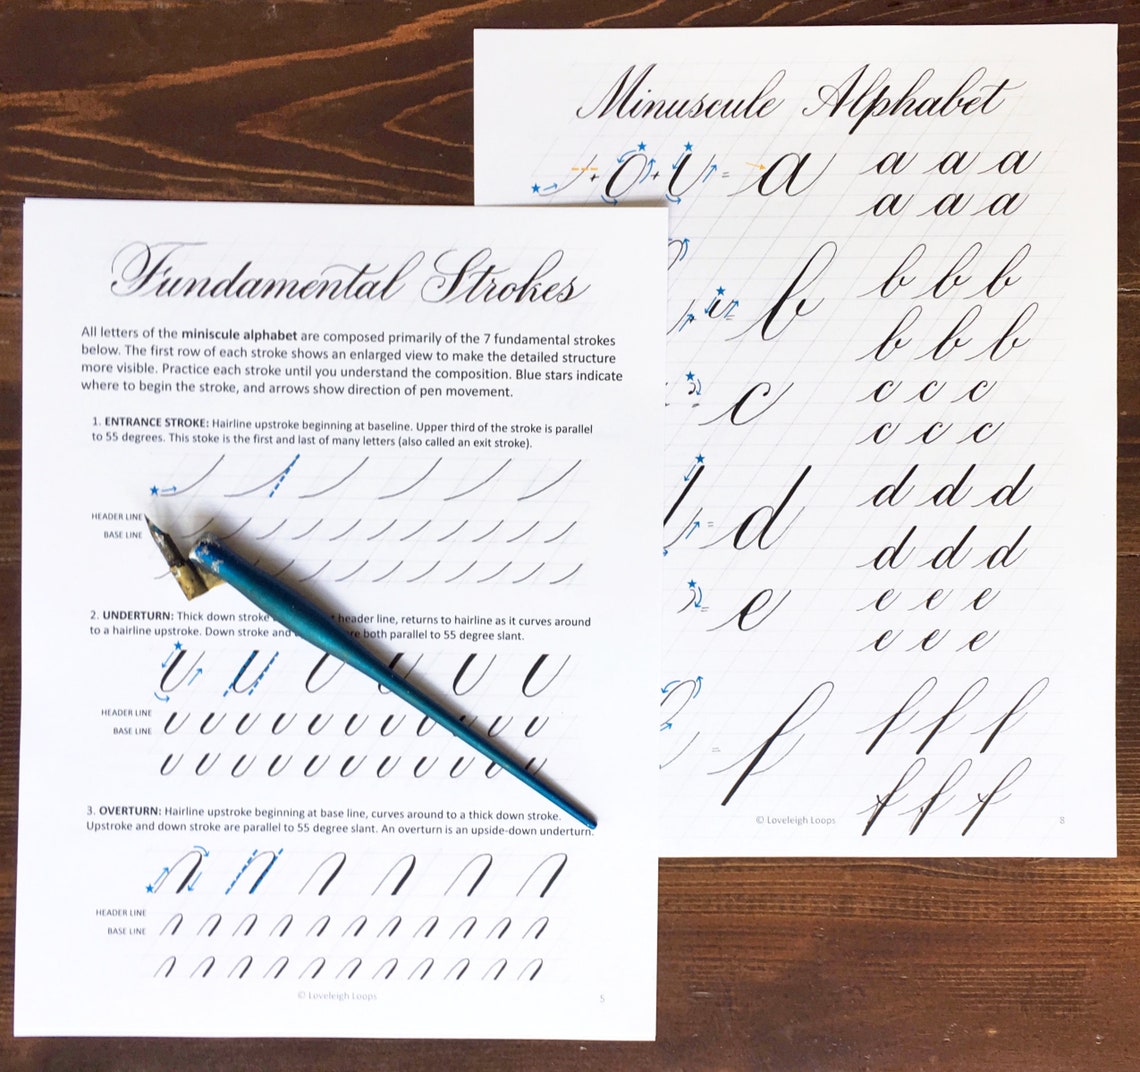 Fundamental Strokes
All letters of the miniscule alphabet are composed primarily of the 7 fundamental strokes
below. The first row of each stroke shows an enlarged view to make the detailed structure
more visible. Practice each stroke until you understand the composition. Blue stars indicate
where to begin the stroke, and arrows show direction of pen movement.
1. ENTRANCE STROKE: Hairline upstroke beginning at baseline. Upper third of the stroke is parallel
to 55 degrees. This stoke is the first and last of many letters (also called an exit stroke).
HEADER LINE
BASE LINE
2. UNDERTURN: Thick down stroke header line, returns to hairline as it curves around
to a hairline upstroke. Down stroke and both parallel to 55 degree slant.
HEADER LINE
BASE LINE
3. OVERTURN: Hairline upstroke beginning at base line, curves around to a thick down stroke.
Upstroke and down stroke are parallel to 55 degree slant. An overturn is an upside-down underturn.
HEADER LINE
BASE LINE
© Loveleigh Loops
5
Minuscule Alphabet
+ + = a a a a
a a a
= b b b b
b b b
= c c c c
c c c
= d d d d
d d d
= e e e e
e e e
= f f f f
f f f
© Loveleigh Loops
8